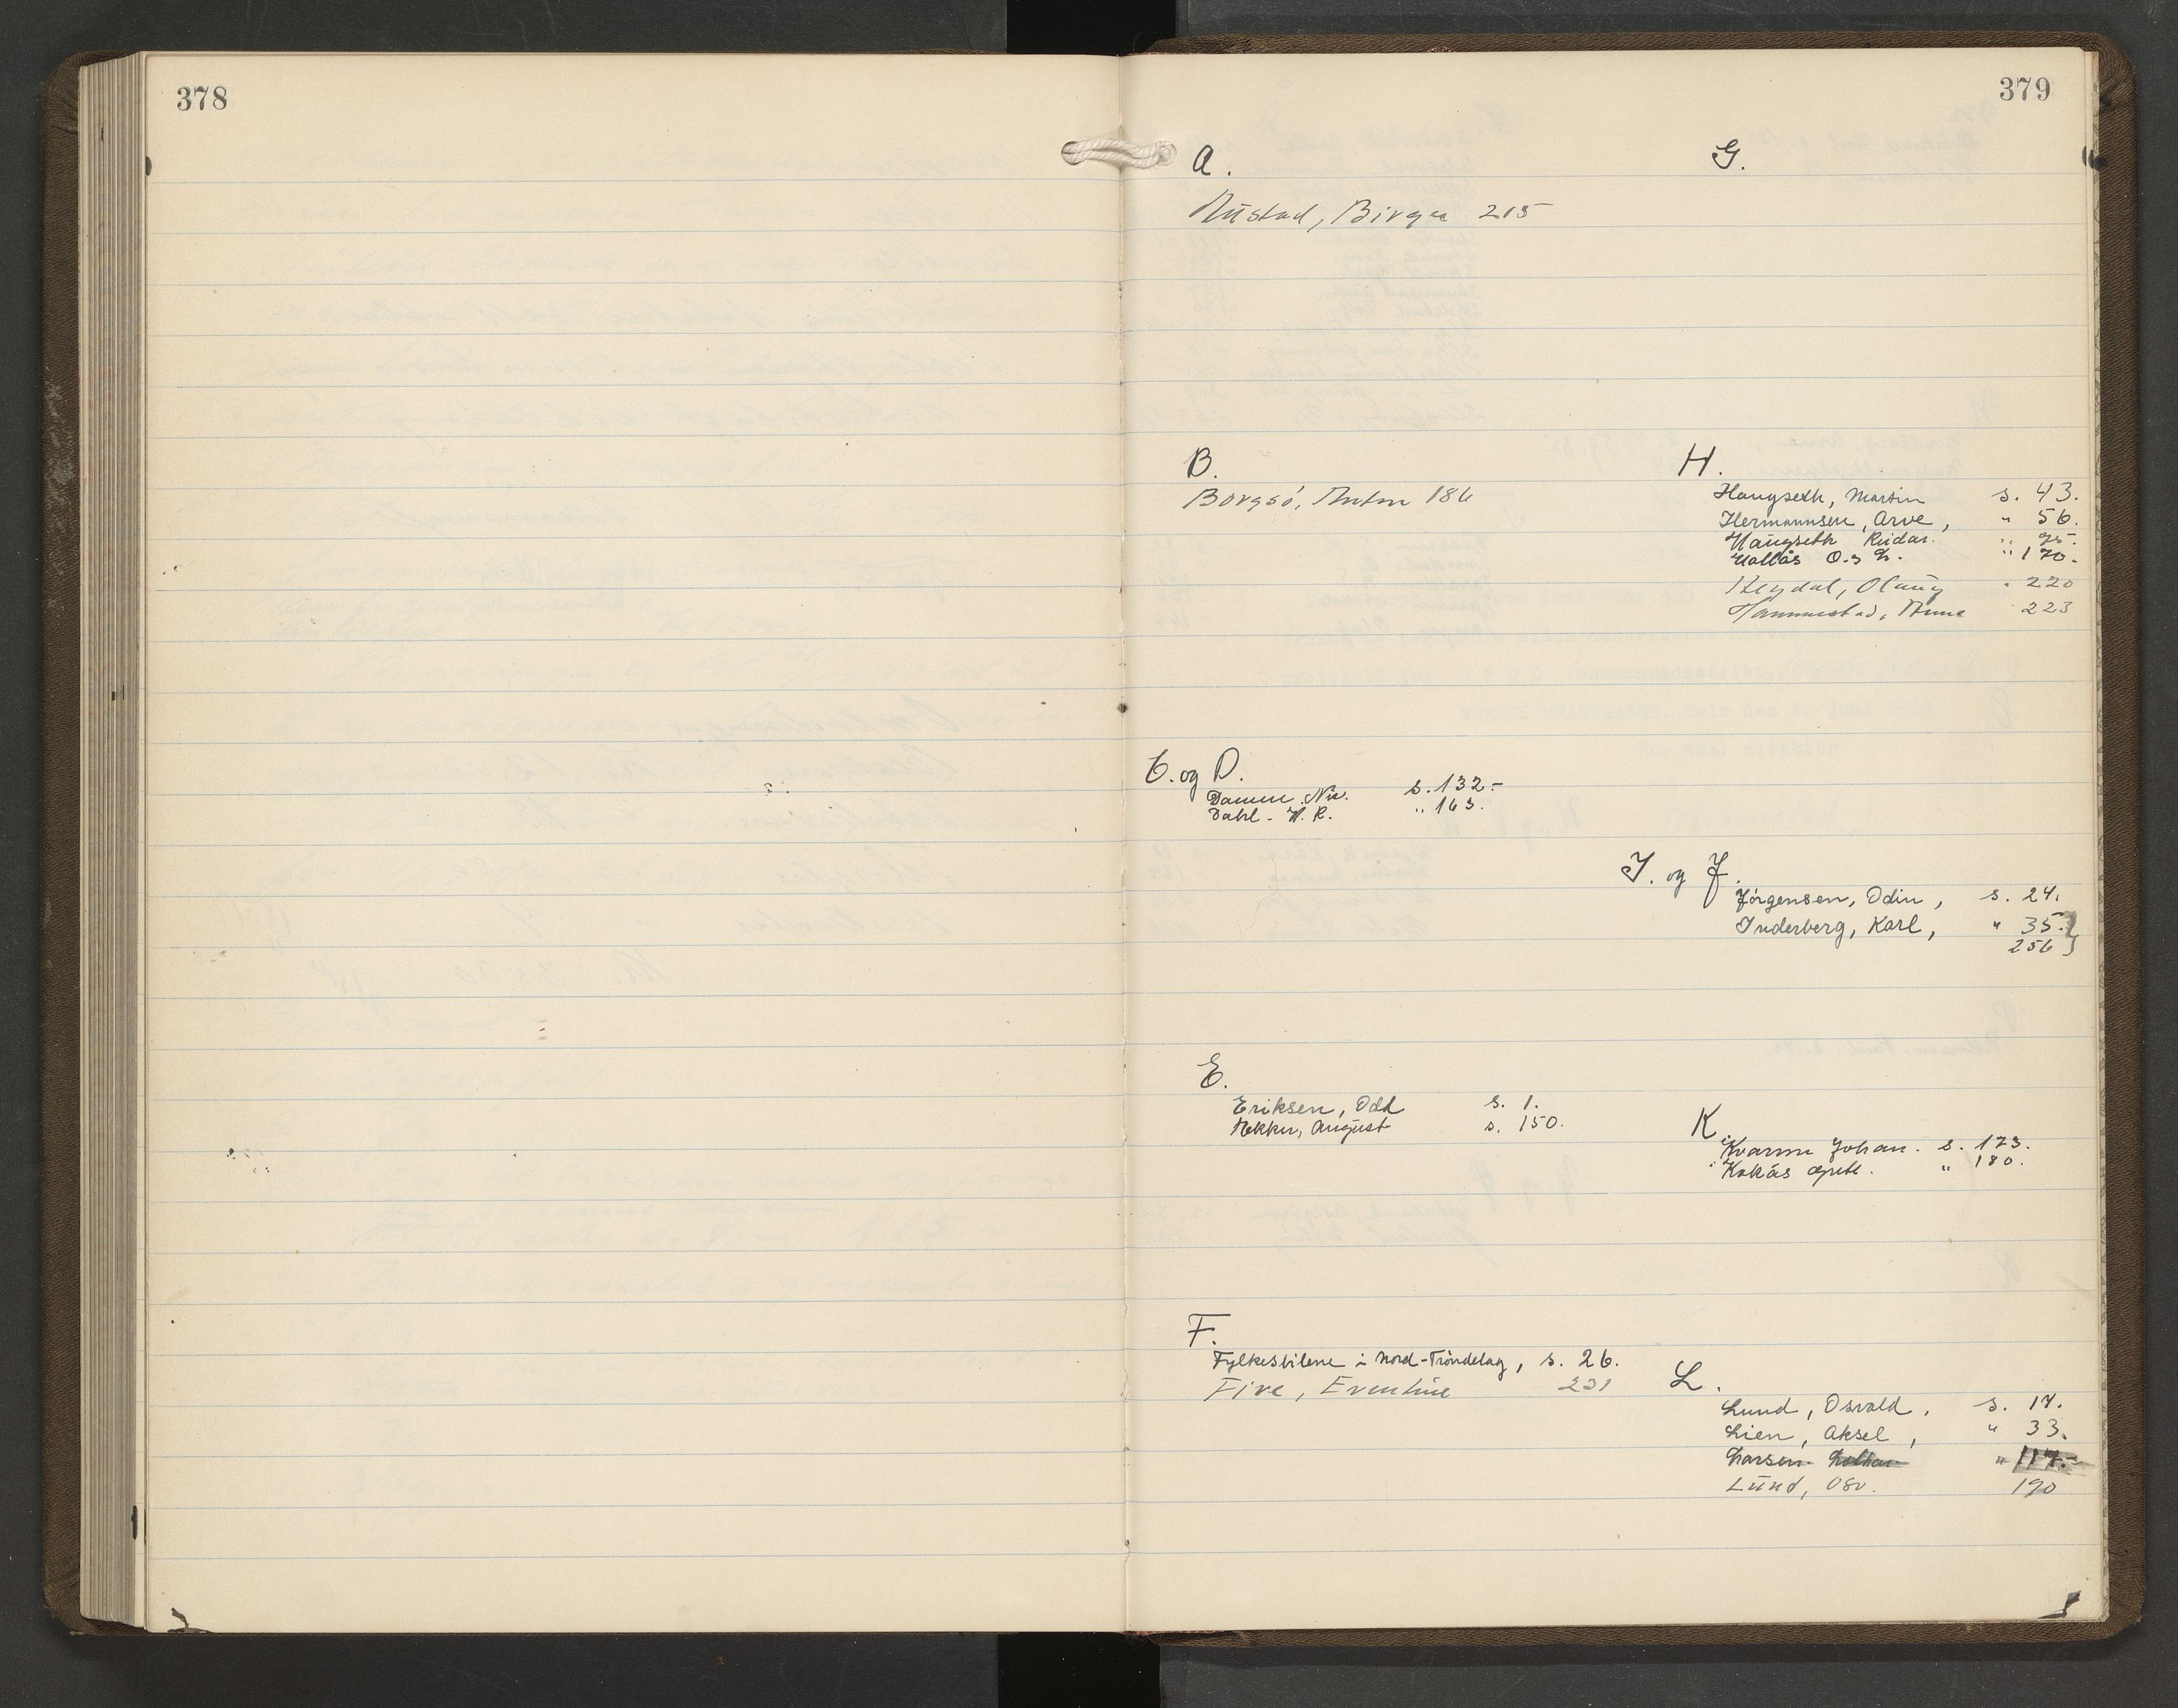 378
379
A.
Aüstad, Birger 215
B.
Borgsö, Anton 186
C. og D.
Damm. Nic. s. 132.-
Dahl - H. R. " 163.
E.
Eriksen, Odd s. 1.
Ekker, August s. 150.
F.
Fylkesbilene i Nord-Tröndelag, s. 26.
Five, Eventine 231
G.
H.
Haugseth, Martin s. 43.
Hermannsen, Arve, " 56.
Haugseth Reidar. " 95.-
Hallås O. s " 170.
Heydal, Olaüg " 220
Hammestad, Arne 223
I. og J.
Jörgensen, Odin, s. 24.
Inderberg, Karl, " 35. }
256 }
K.
Kvarme Johan. s. 173.
Kokås " 180.
L.
Lund, Osvald, s. 17.
Lien, Aksel, " 33.
Larsen " 117.-
Lünd, Osv. 190